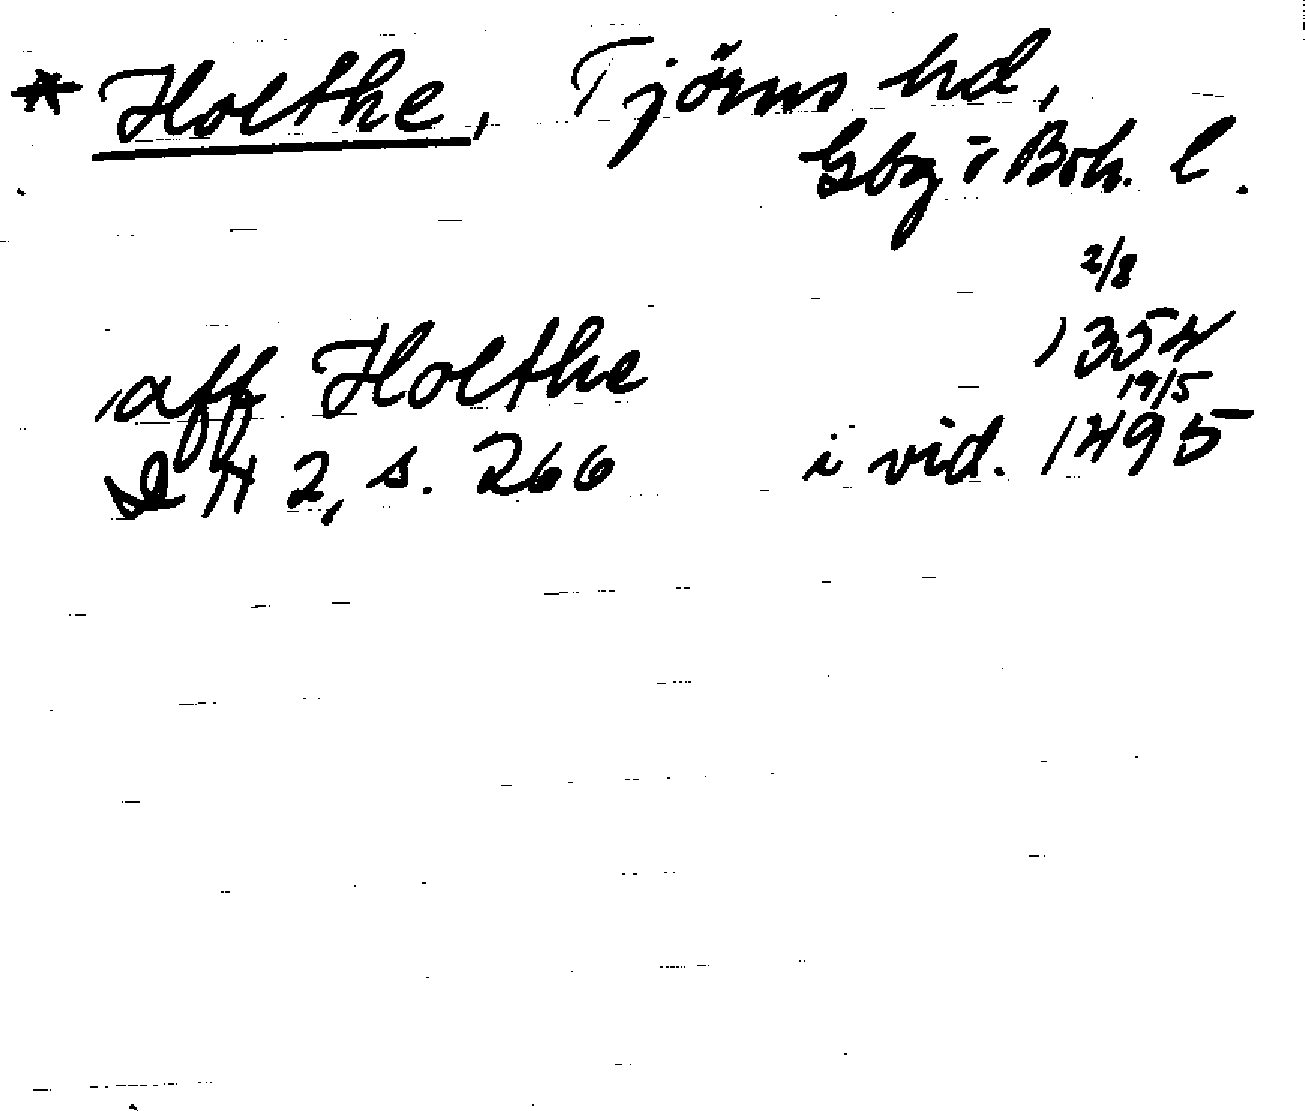 * Holthe, Tjörns hd,
Gbg i Boh. l.
2/8
aff Holthe 1354
19/5
DN 2, s. 266 i vid. 1495